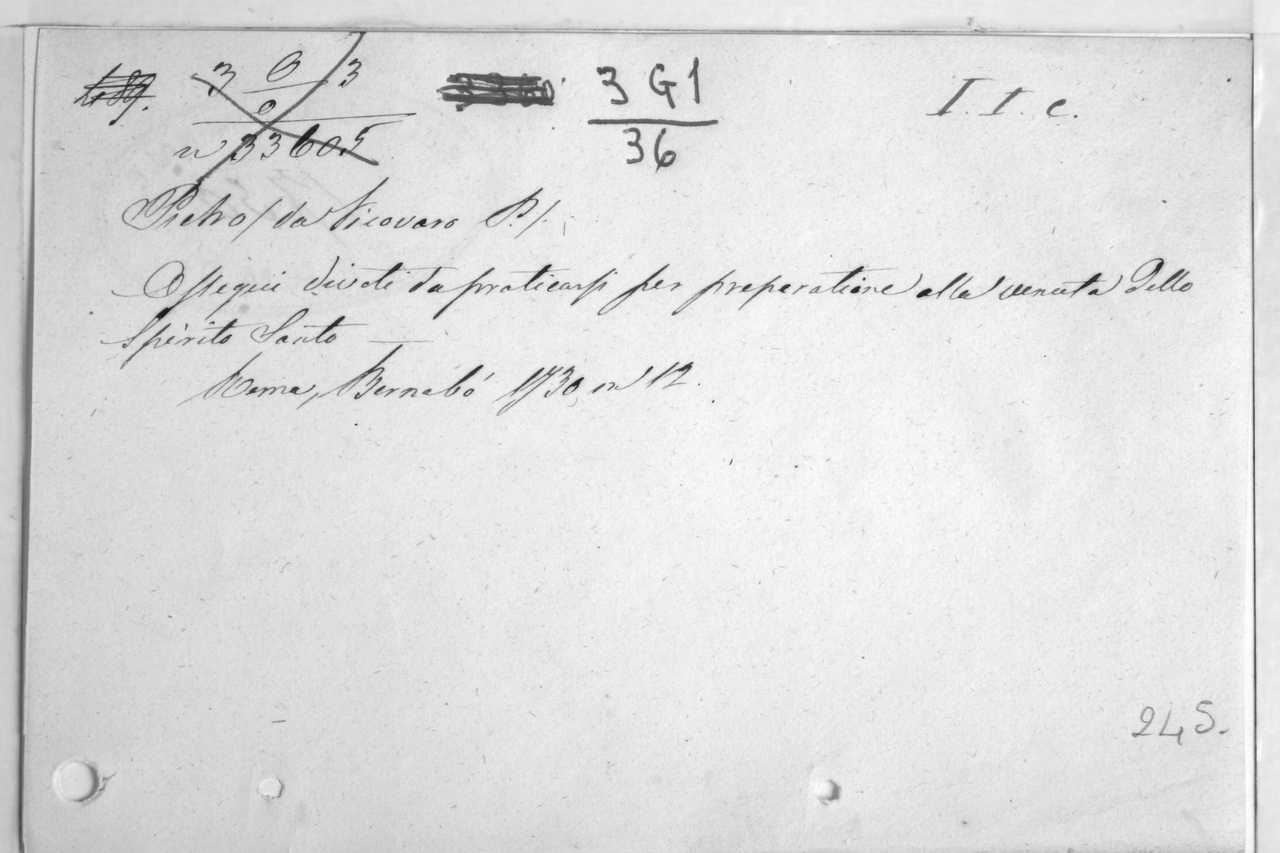 3 O 3
0
n 33605
3 G1
36
I. I. c.
Pietro / da Vicovaro P. /.
Ossequi divoti da praticarsi per preparatione alla venuta dello
Spirito Santo —
Roma, Bernabó 1730, in 12.
245.